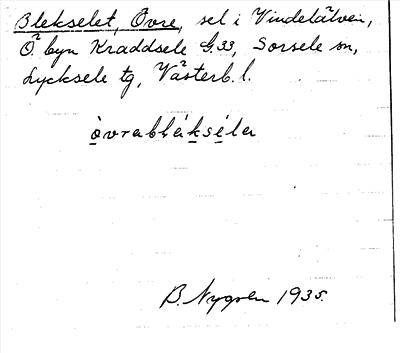 Blekselet, Övre, sel i Vindelälven,
Ö. byn Kraddsele G.33, Sorsele sn,
Lycksele tg, Västerb. l.
òvrablékséla
B. Nygren 1935.